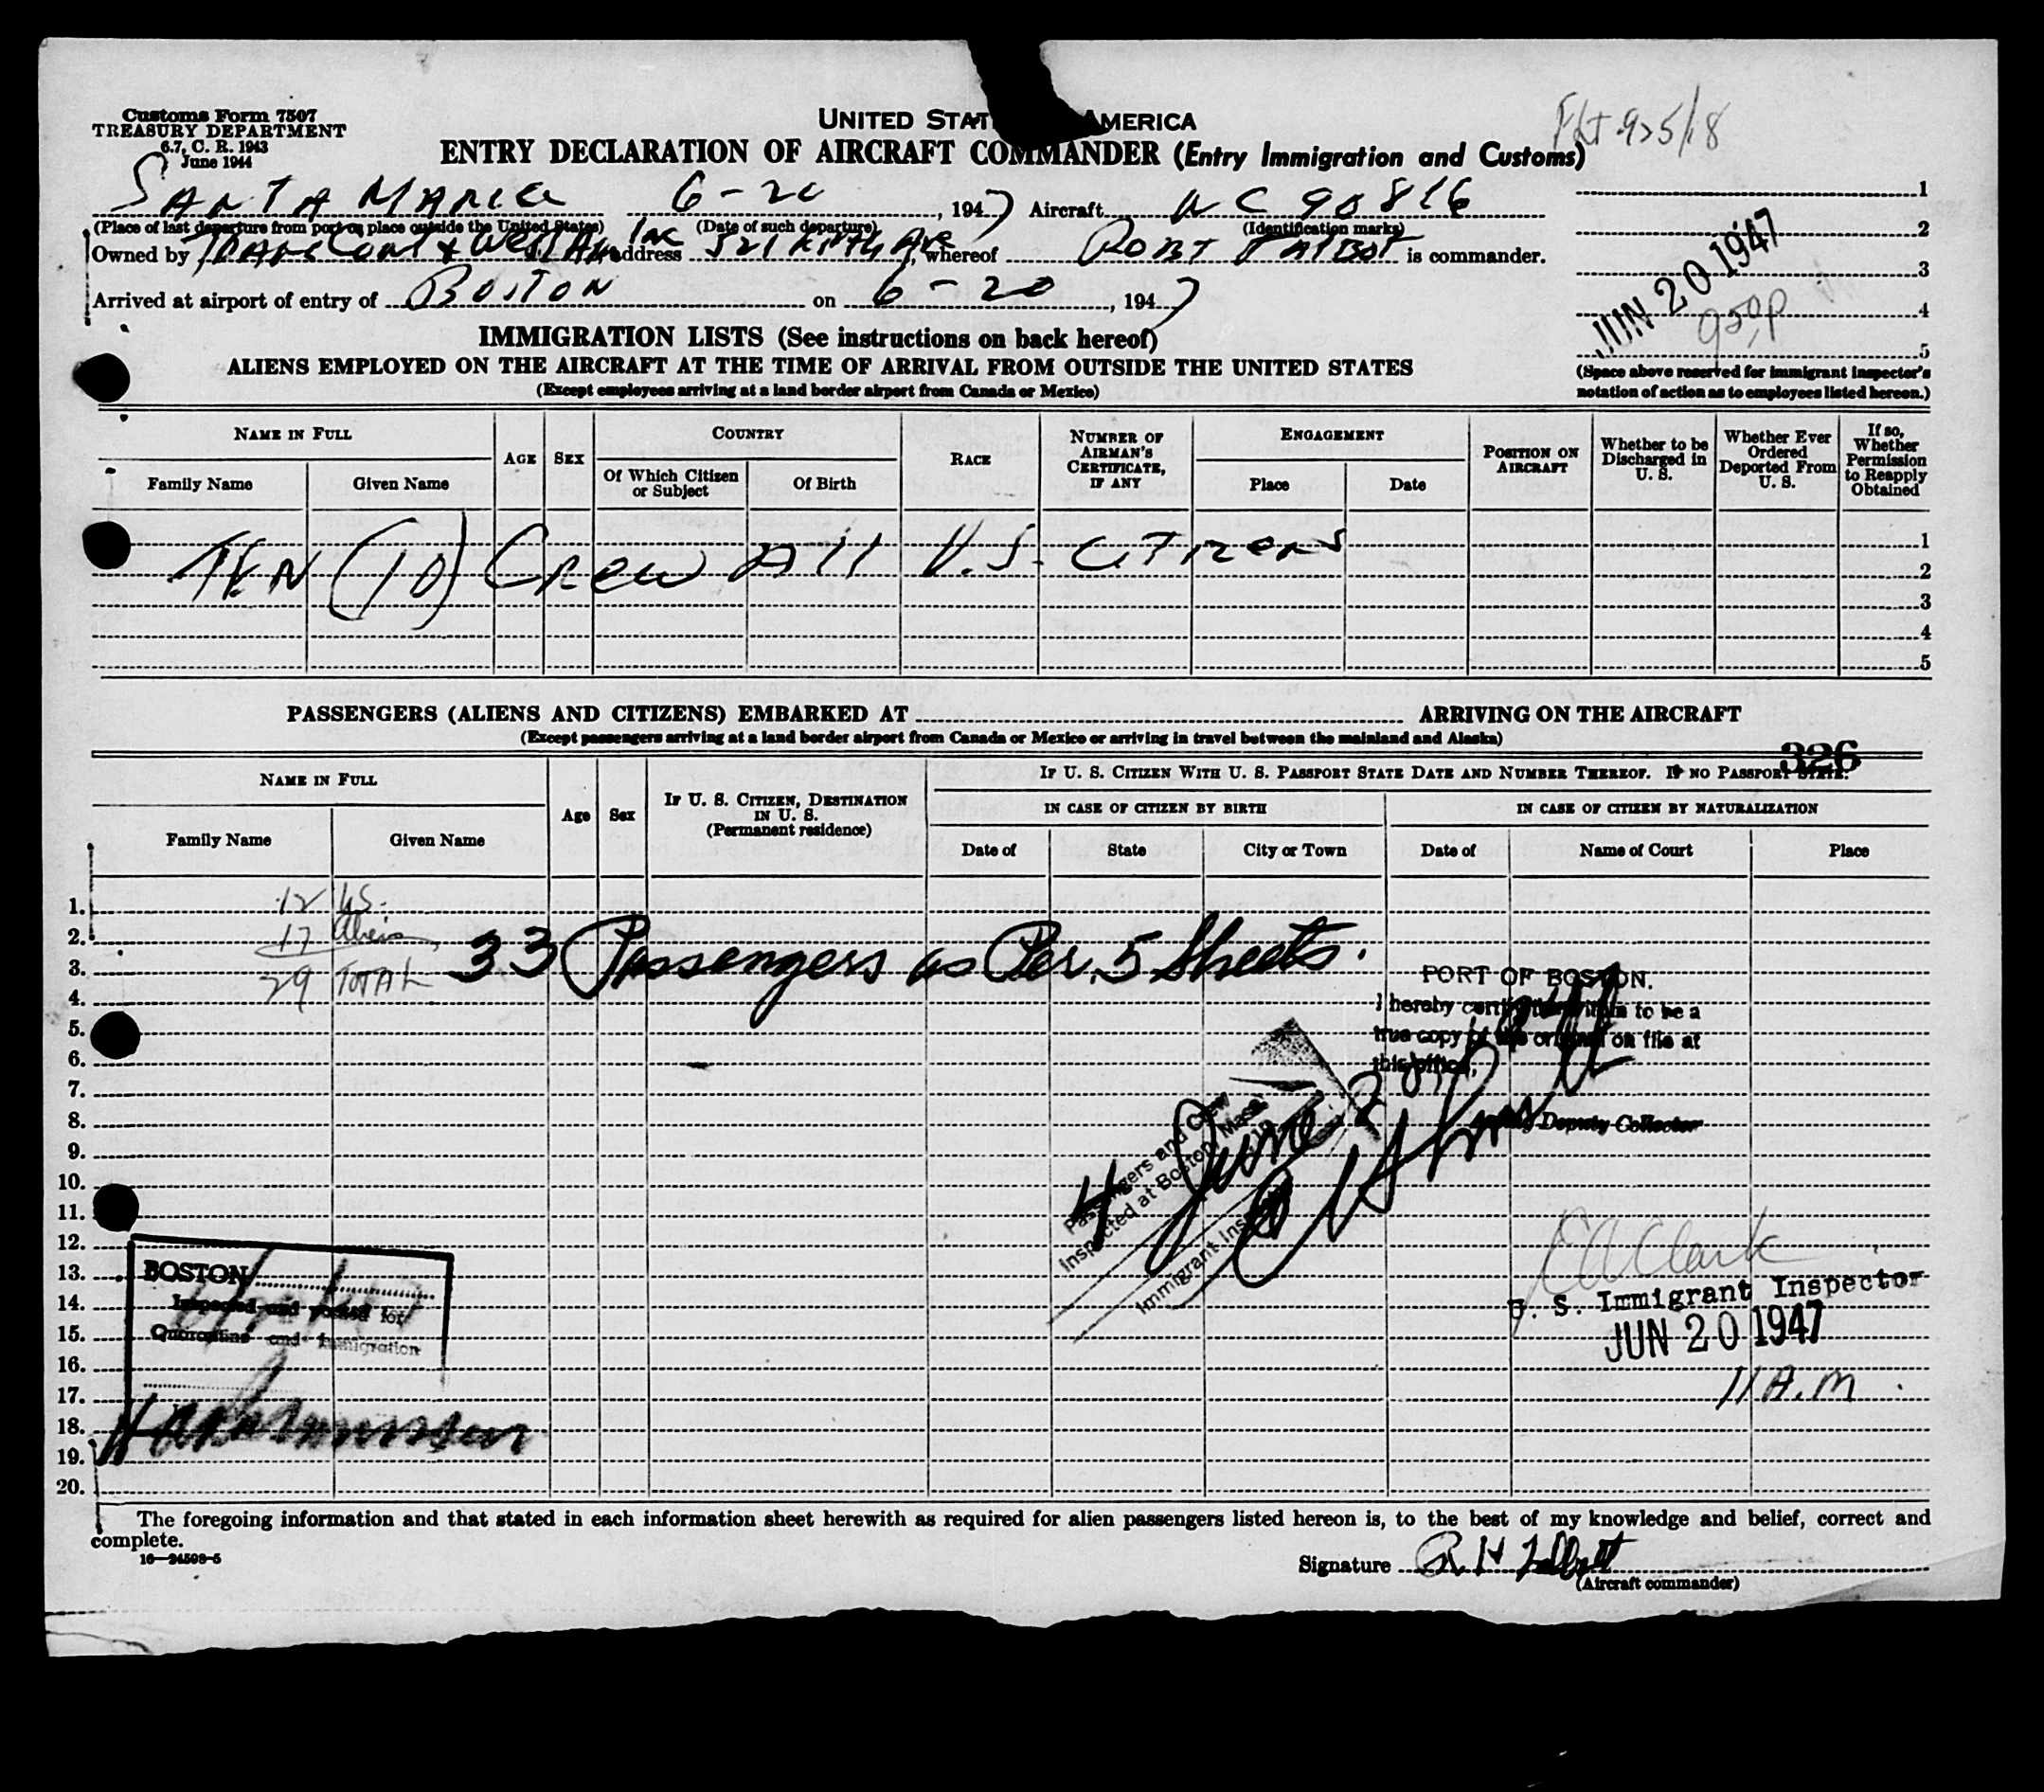 Customs Form 7507
TREASURY DEPARTMENT
6.7, C. R. 1943
June 1944
UNITED STAT AMERICA
Flt 925/18
ENTRY DECLARATION OF AIRCRAFT COMMANDER (Entry Immigration and Customs)
SANTA MARIA 6-20, 1947 Aircraft NC 90816
(Place of last departure from port or place outside the United States) (Date of such departure) (Identification marks)
Owned by Trans Cont & West Air Inc Address 521 Fifth Ave, whereof ROBT TALBOT is commander.
Arrived at airport of entry of BOSTON on 6-20, 1947
1
2
3
4
5
JUN 20 1947
950p
(Space above reserved for immigrant inspector's notation of action as to employees listed hereon.)
IMMIGRATION LISTS (See instructions on back hereof)
ALIENS EMPLOYED ON THE AIRCRAFT AT THE TIME OF ARRIVAL FROM OUTSIDE THE UNITED STATES
(Except employees arriving at a land border airport from Canada or Mexico)
NAME IN FULL
Family Name
Given Name
AGE
SEX
COUNTRY
Of Which Citizen or Subject
Of Birth
RACE
NUMBER OF AIRMAN'S CERTIFICATE, IF ANY
ENGAGEMENT
Place
Date
POSITION ON AIRCRAFT
Whether to be Discharged in U. S.
Whether Ever Ordered Deported From U. S.
If so, Whether Permission to Reapply Obtained
TEN (10) Crew All U.S. Citizens
1
2
3
4
5
PASSENGERS (ALIENS AND CITIZENS) EMBARKED AT ARRIVING ON THE AIRCRAFT
(Except passengers arriving at a land border airport from Canada or Mexico or arriving in travel between the mainland and Alaska)
326
NAME IN FULL
Family Name
Given Name
Age
Sex
IF U. S. CITIZEN, DESTINATION IN U. S.
(Permanent residence)
IF U. S. CITIZEN WITH U. S. PASSPORT STATE DATE AND NUMBER THEREOF. IF NO PASSPORT STATE:
IN CASE OF CITIZEN BY BIRTH
Date of
State
City or Town
IN CASE OF CITIZEN BY NATURALIZATION
Date of
Name of Court
Place
12 US.
17 Aliens
29 TOTAL
33 Passengers as Per 5 Sheets.
1.
2.
3.
4.
5.
6.
7.
8.
9.
10.
11.
12.
13.
14.
15.
16.
17.
18.
19.
20.
PORT OF BOSTON.
I hereby certify the within to be a
true copy of the original on file at
this office,
Deputy Collector
Passengers and Crew
Inspected at Boston, Mass.
June
Immigrant Inspector
BOSTON
Inspected and passed for
Quarantine and Immigration
E A Clark
U. S. Immigrant Inspector
JUN 20 1947
11 A.M.
The foregoing information and that stated in each information sheet herewith as required for alien passengers listed hereon is, to the best of my knowledge and belief, correct and
complete.
16—24508-5
Signature R H Talbot
(Aircraft commander)